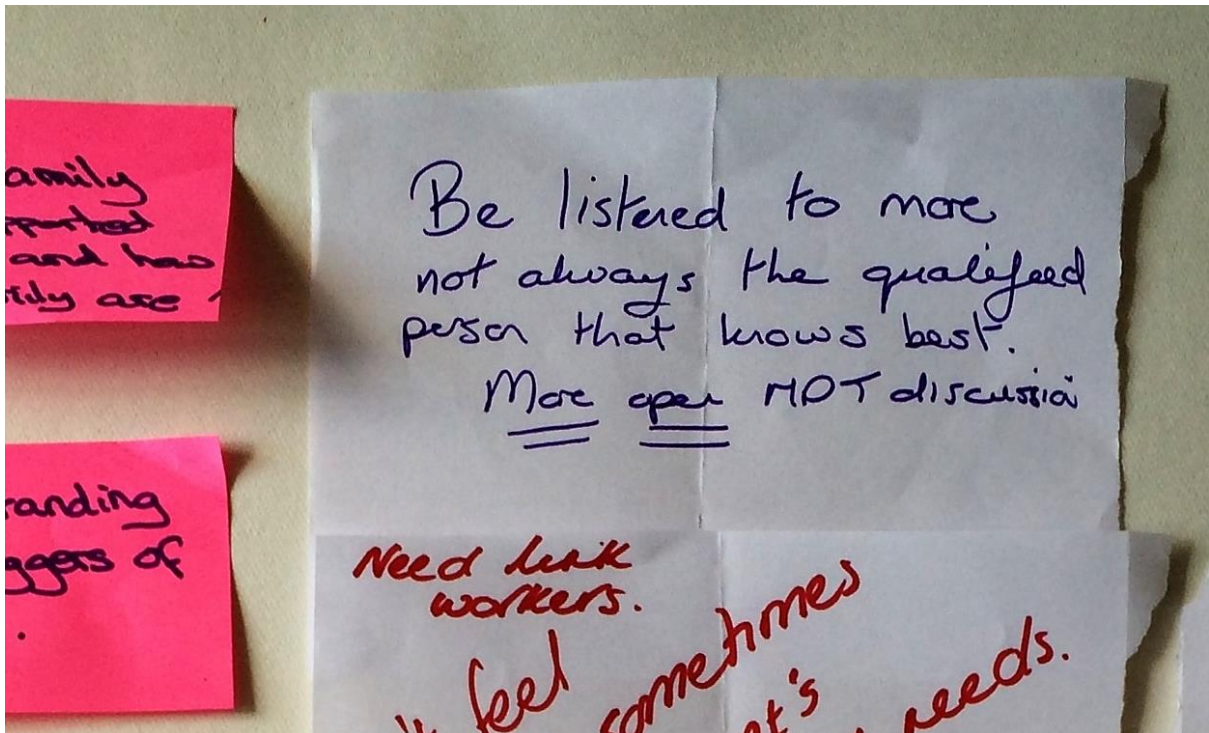 amily
pported
and how
ily are
anding
ggers of
.
Be listened to more
not always the qualifeed
person that knows best.
More open MDT discussion
Need link
workers.
feel
sometimes
t's
needs.